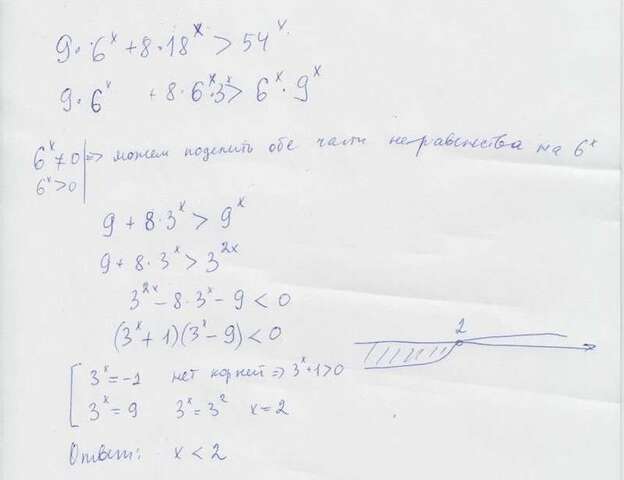 9·6^x + 8·18^x > 54^x
9·6^x + 8·6^x·3^x > 6^x·9^x
6^x ≠ 0 | => можем поделить обе части неравенства на 6^x
6^x > 0
9 + 8·3^x > 9^x
9 + 8·3^x > 3^2x
3^2x - 8·3^x - 9 < 0
(3^x + 1)(3^x - 9) < 0
2
[ 3^x = -1 нет корней => 3^x + 1 > 0
3^x = 9 3^x = 3^2 x = 2
Ответ: x < 2